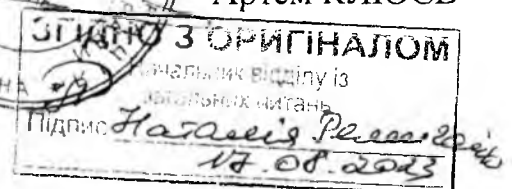 Артем КЛЮЄВ
ЗГІДНО З ОРИГІНАЛОМ
Начальник відділу із
загальних питань
Підпис Наталія
17.08.2023